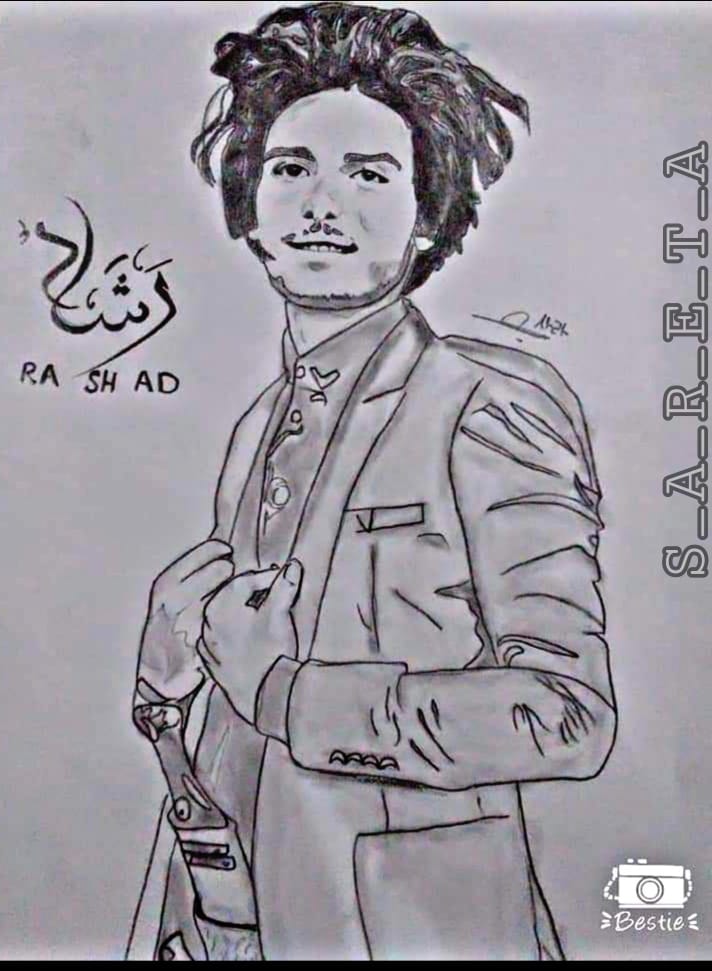 رشاد
RA SH AD
S_A_R_E_T_A
Bestie